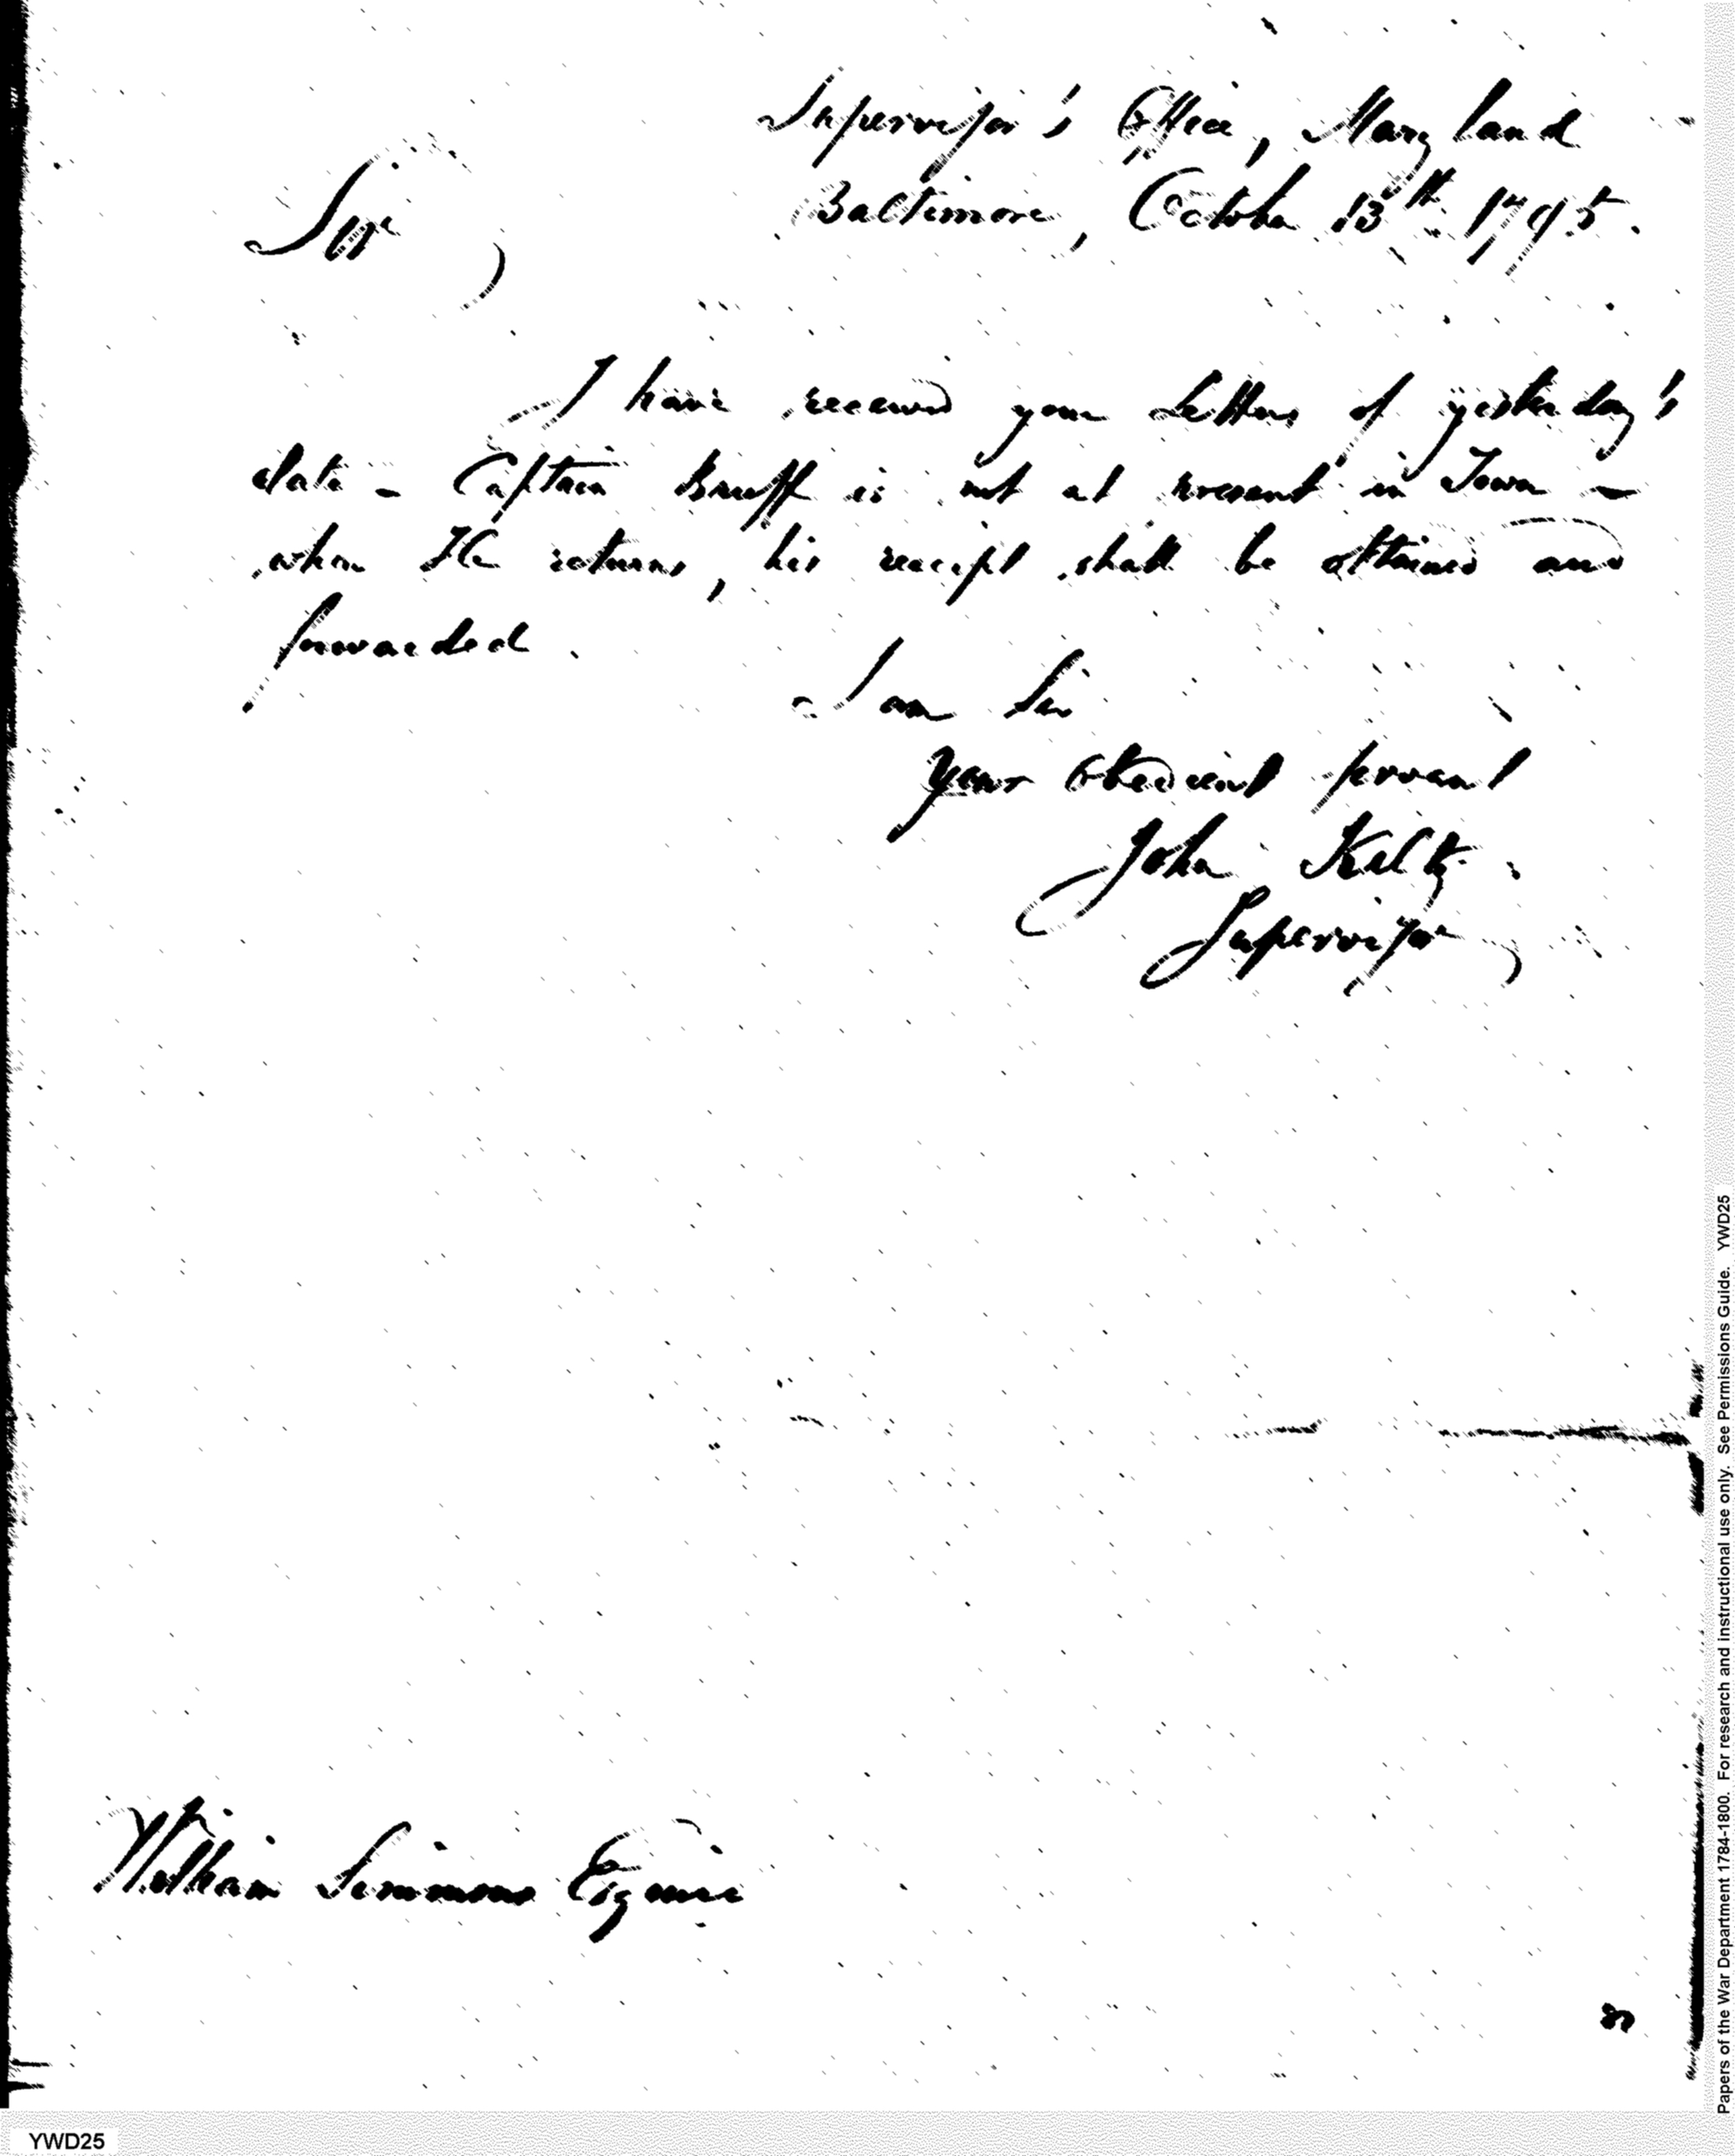 Supervisor's Office, Maryland
Baltimore, October 13th 1795.
Sir,
I have received your Letters of yesterday's
date - Captain Bruff is not at present in Town -
when He returns, his receipt shall be obtained and
forwarded.
I am Sir
Your Obedient servant
John Kilty.
Supervisor,
William Simmons Esquire
Papers of the War Department 1784-1800. For research and instructional use only. See Permissions Guide. YWD25
YWD25